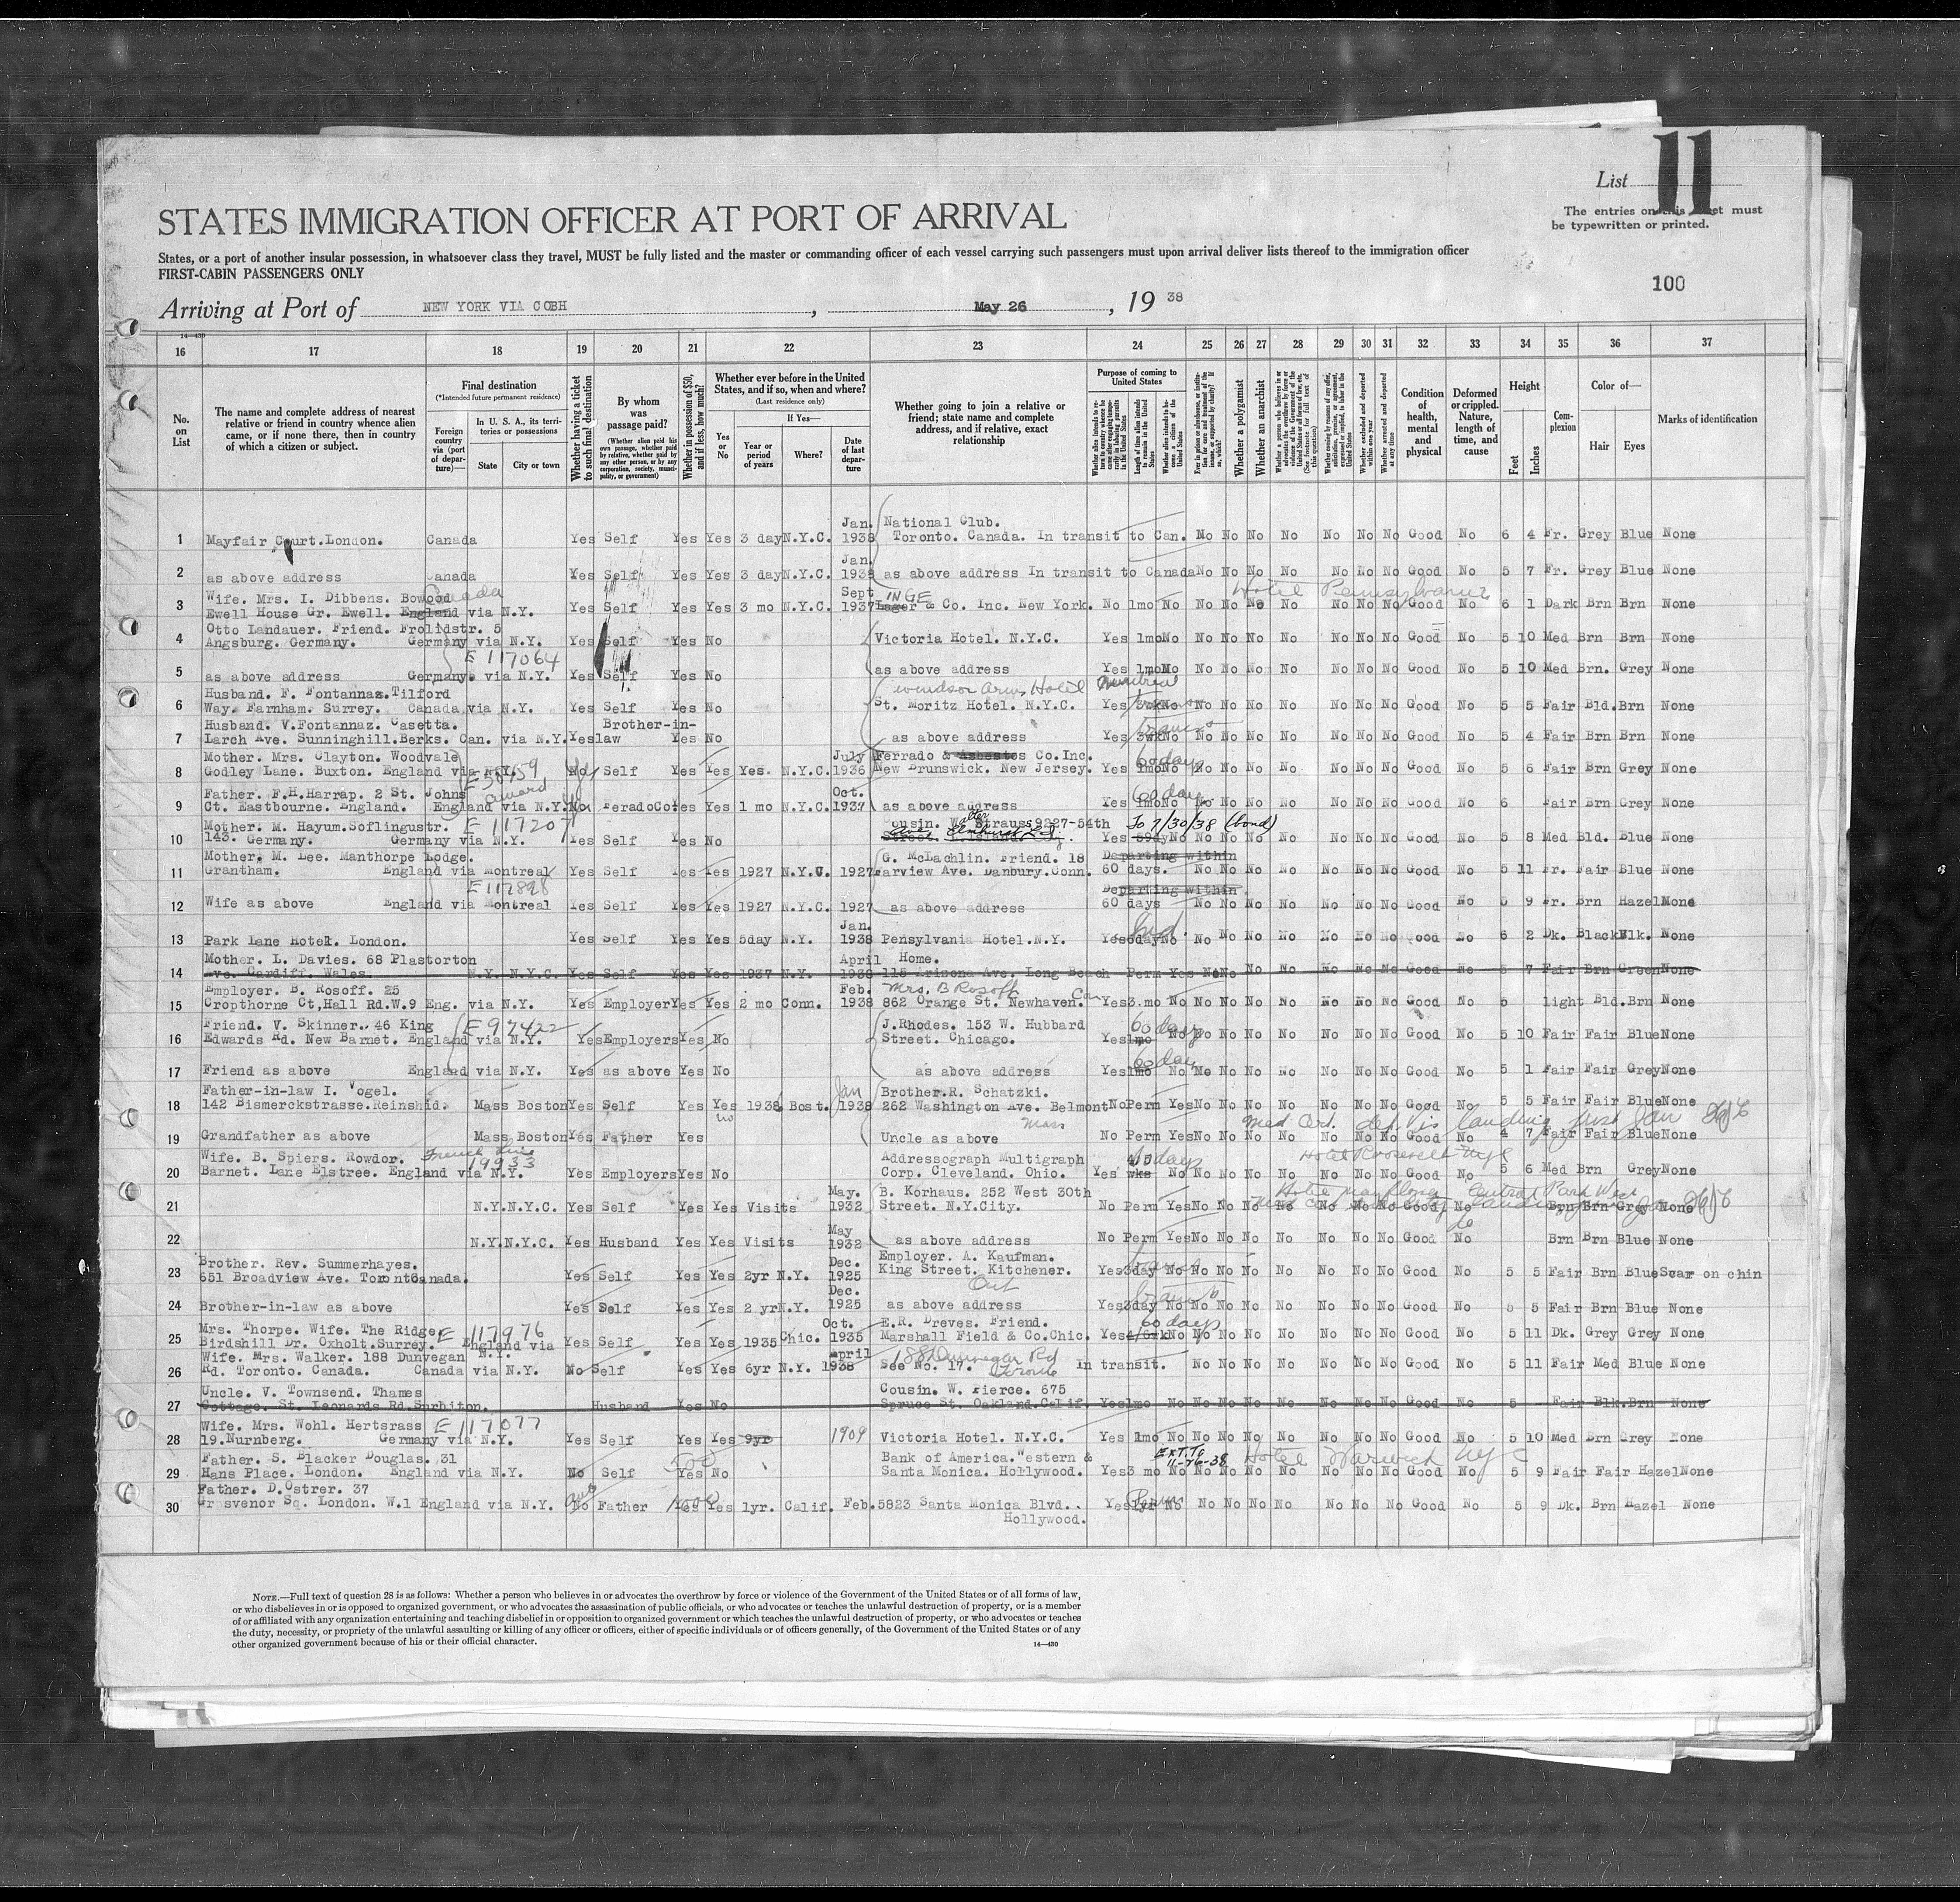 List 11
STATES IMMIGRATION OFFICER AT PORT OF ARRIVAL
The entries on this sheet must
be typewritten or printed.
States, or a port of another insular possession, in whatsoever class they travel, MUST be fully listed and the master or commanding officer of each vessel carrying such passengers must upon arrival deliver lists thereof to the immigration officer
FIRST-CABIN PASSENGERS ONLY
100
Arriving at Port of NEW YORK VIA COBH, May 26, 19 38
14—430
16 17 18 19 20 21 22 23 24 25 26 27 28 29 30 31 32 33 34 35 36 37
No. on List
The name and complete address of nearest relative or friend in country whence alien came, or if none there, then in country of which a citizen or subject.
Final destination
(*Intended future permanent residence)
Foreign country via (port of departure)—
In U. S. A., its territories or possessions
State
City or town
Whether having a ticket to such final destination
By whom was passage paid?
(Whether alien paid his own passage, whether paid by relative, whether paid by any other person, or by any corporation, society, municipality, or government)
Whether in possession of $50, and if less, how much?
Whether ever before in the United States, and if so, when and where?
(Last residence only)
Yes or No
If Yes—
Year or period of years
Where?
Date of last departure
Whether going to join a relative or friend; state name and complete address, and if relative, exact relationship
Purpose of coming to United States
Length of time alien intends to remain in the United States
Whether alien intends to become a citizen of the United States
Whether a polygamist
Whether an anarchist
Whether excluded and deported within one year
Whether arrested and deported at any time
Condition of health, mental and physical
Deformed or crippled. Nature, length of time, and cause
Height
Feet
Inches
Complexion
Color of—
Hair
Eyes
Marks of identification
1 Mayfair Court.London. Canada Yes Self Yes Yes 3 day N.Y.C. Jan. 1938 National Club. Toronto. Canada. In transit to Can. No No No No No No No Good No 6 4 Fr. Grey Blue None
2 as above address Canada Yes Self Yes Yes 3 day N.Y.C. Jan. 1938 as above address In transit to Canada No No No No No No No Good No 5 7 Fr. Grey Blue None
Canada
Hotel Pennsylvania
3 Wife. Mrs. I. Dibbens. Bowood Ewell House Gr. Ewell. England via N.Y. Yes Self Yes Yes 3 mo N.Y.C. Sept 1937 INGE & Co. Inc. New York. No 1mo No No No No No No No No Good No 6 1 Dark Brn Brn None
4 Otto Landauer. Friend. Frolidstr. 5 Angsburg. Germany. Germany via N.Y. Yes Self Yes No Victoria Hotel. N.Y.C. Yes 1mo No No No No No No No No Good No 5 10 Med Brn Brn None
E 117064
5 as above address Germany. via N.Y. Yes Self Yes No as above address Yes 1mo No No No No No No No No Good No 5 10 Med Brn. Grey None
Windsor Arms Hotel Montreal
6 Husband. F. Fontannaz. Tilford Way. Farnham. Surrey. Canada via N.Y. Yes Self Yes No St. Moritz Hotel. N.Y.C. Yes 3wk No No No No No No No No Good No 5 5 Fair Bld. Brn None
7 Husband. V.Fontannaz. Casetta. Larch Ave. Sunninghill.Berks. Can. via N.Y. Yes Brother-in-law Yes No as above address Yes 3wk No No No No No No No No Good No 5 4 Fair Brn Brn None
8 Mother. Mrs. Clayton. Woodvale Godley Lane. Buxton. England via N.Y. No Self Yes Yes Yes. N.Y.C. July 1936 Ferrado & Asbestos Co.Inc. New Brunswick. New Jersey. Yes 1mo 60 days No No No No No No No No Good No 5 6 Fair Brn Grey None
9 Father. F.H.Harrap. 2 St. Johns Ct. Eastbourne. England. England via N.Y. No FeradoCo. Yes Yes 1 mo N.Y.C. Oct. 1937 as above address Yes 1mo 60 days No No No No No No No No Good No 6 Fair Brn Grey None
E 117207
10 Mother. M. Hayum.Soflingustr. 143. Germany. Germany via N.Y. Yes Self Yes No Cousin. Walter Strauss 9227-54th Ave. Elmhurst L.I. To 7/30/38 (bond) Yes 59dy No No No No No No No No Good No 5 8 Med Bld. Blue None
11 Mother. M. Lee. Manthorpe Lodge. Grantham. England via Montreal Yes Self Yes Yes 1927 N.Y.C. 1927 G. McLachlin. Friend. 18 Farview Ave. Danbury.Conn. Departing within 60 days. No No No No No No No Good No 5 11 Fr. Fair Blue None
E 117898
12 Wife as above England via Montreal Yes Self Yes Yes 1927 N.Y.C. 1927 as above address Departing within 60 days No No No No No No No Good No 5 9 Fr. Brn Hazel None
13 Park Lane Hotel. London. Yes Self Yes Yes 5day N.Y. Jan. 1938 Pensylvania Hotel.N.Y. Yes 6day No No No No No No No No Good No 6 2 Dk. Black Blk. None
14 Mother. L. Davies. 68 Plastorton Ave. Cardiff. Wales. N.Y. N.Y.C. Yes Self Yes Yes 1937 N.Y. April 1938 Home. 115 Arizona Ave. Long Beach Perm Yes No No No No No No No Good No 5 7 Fair Brn Green None
15 Employer. B. Rosoff. 25 Cropthorne Ct,Hall Rd.W.9 Eng. via N.Y. Yes Employer Yes Yes 2 mo Conn. Feb. 1938 Mrs. B Rosoff 862 Orange St. Newhaven. Con Yes 3.mo No No No No No No No No Good No 5 light Bld.Brn None
E 97422
16 Friend. V. Skinner. 46 King Edwards Rd. New Barnet. England via N.Y. Yes Employers Yes No J.Rhodes. 153 W. Hubbard Street. Chicago. Yes 1mo 60 days No No No No No No No No Good No 5 10 Fair Fair Blue None
17 Friend as above England via N.Y. Yes as above Yes No as above address Yes 1mo 60 days No No No No No No No No Good No 5 1 Fair Fair Grey None
18 Father-in-law I. Vogel. 142 Bismerckstrasse.Reinshid. Mass Boston Yes Self Yes Yes 1938 Bost. Jan 1938 Brother.R. Schatzki. 262 Washington Ave. Belmont Mass No Perm Yes No No No No No No No Good No 5 5 Fair Fair Blue None
19 Grandfather as above Mass Boston Yes Father Yes No Uncle as above No Perm Yes No No No No No No No Good No 4 7 Fair Fair Blue None
French Line 19933
Hotel Roosevelt NYC
20 Wife. B. Spiers. Rowdor. Barnet. Lane Elstree. England via N.Y. Yes Employers Yes No Addressograph Multigraph Corp. Cleveland. Ohio. Yes wks 60 days No No No No No No No No Good No 5 6 Med Brn Grey None
Hotel Mayflower Central Park West
21 N.Y. N.Y.C. Yes Self Yes Yes Visits May. 1932 B. Korhaus. 252 West 30th Street. N.Y.City. No Perm Yes No No No No No No No Good No Brn Brn Grey None
22 N.Y. N.Y.C. Yes Husband Yes Yes Visits May 1932 as above address No Perm Yes No No No No No No No Good No Brn Brn Blue None
23 Brother. Rev. Summerhayes. 651 Broadview Ave. Toronto Canada. Yes Self Yes Yes 2yr N.Y. Dec. 1925 Employer. A. Kaufman. King Street. Kitchener. Ont Yes 3day No No No No No No No No Good No 5 5 Fair Brn Blue Scar on chin
24 Brother-in-law as above Yes Self Yes Yes 2 yr N.Y. Dec. 1925 as above address Yes 3day No No No No No No No No Good No 5 5 Fair Brn Blue None
E 117976
25 Mrs. Thorpe. Wife. The Ridge. Birdshill Dr. Oxholt.Surrey. England via N.Y. Yes Self Yes Yes 1935 Chic. Oct. 1935 E.R. Dreves. Friend. Marshall Field & Co.Chic. Yes 60 days No No No No No No No No Good No 5 11 Dk. Grey Grey None
26 Wife. Mrs. Walker. 188 Dunvegan Rd. Toronto. Canada. Canada via N.Y. No Self Yes Yes 6yr N.Y. April 1938 See No. 17. 188 Dunvegan Rd Toronto In transit. No No No No No No No Good No 5 11 Fair Med Blue None
27 Uncle. V. Townsend. Thames Cottage. St. Leonards Rd.Surbiton. Husband Yes No Cousin. W. Pierce. 675 Spruce St. Oakland.Calif. Yes 1mo No No No No No No No No Good No 5 - Fair Blk.Brn None
E 117077
28 Wife. Mrs. Wohl. Hertsrass 19.Nurnberg. Germany via N.Y. Yes Self Yes Yes 9yr 1909 Victoria Hotel. N.Y.C. Yes 1mo No No No No No No No No Good No 5 10 Med Brn Grey None
Hotel Warwick NYC
29 Father. S. Blacker Douglas. 31 Hans Place. London. England via N.Y. No Self 500 Yes No Bank of America. Western & Santa Monica. Hollywood. Yes 3 mo Ext. To 11-26-38 No No No No No No No No Good No 5 9 Fair Fair Hazel None
30 Father. D.Ostrer. 37 Grosvenor Sq. London. W.1 England via N.Y. No Father Yes Yes 1yr. Calif. Feb. 5823 Santa Monica Blvd. Hollywood. Yes 1yr No No No No No No No No Good No 5 9 Dk. Brn Hazel None
NOTE.—Full text of question 28 is as follows: Whether a person who believes in or advocates the overthrow by force or violence of the Government of the United States or of all forms of law,
or who disbelieves in or is opposed to organized government, or who advocates the assassination of public officials, or who advocates or teaches the unlawful destruction of property, or is a member
of or affiliated with any organization entertaining and teaching disbelief in or opposition to organized government or which teaches the unlawful destruction of property, or who advocates or teaches
the duty, necessity, or propriety of the unlawful assaulting or killing of any officer or officers, either of specific individuals or of officers generally, of the Government of the United States or of any
other organized government because of his or their official character.
14—430